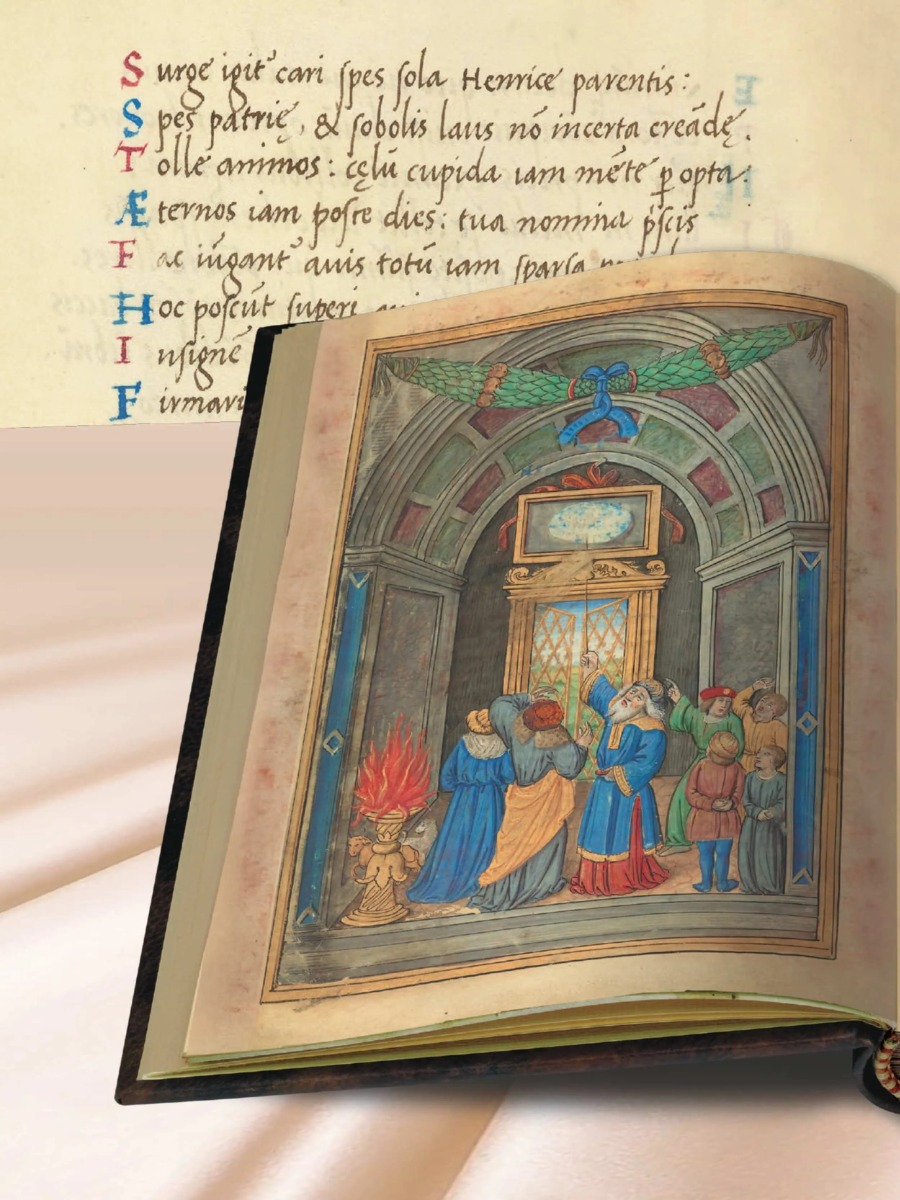 Surge igit᾽ cari spes sola Henrice parentis:
Spes patrię, & sobolis laus nō incerta creādę.
Tolle animos: cęlū cupida iam mēte ꝑ opta:
Æternos iam posce dies: tua nomina
Fac iūgant᾽ avis totū iam sparsa
Hoc poscūt superi
Insignē
Firmari